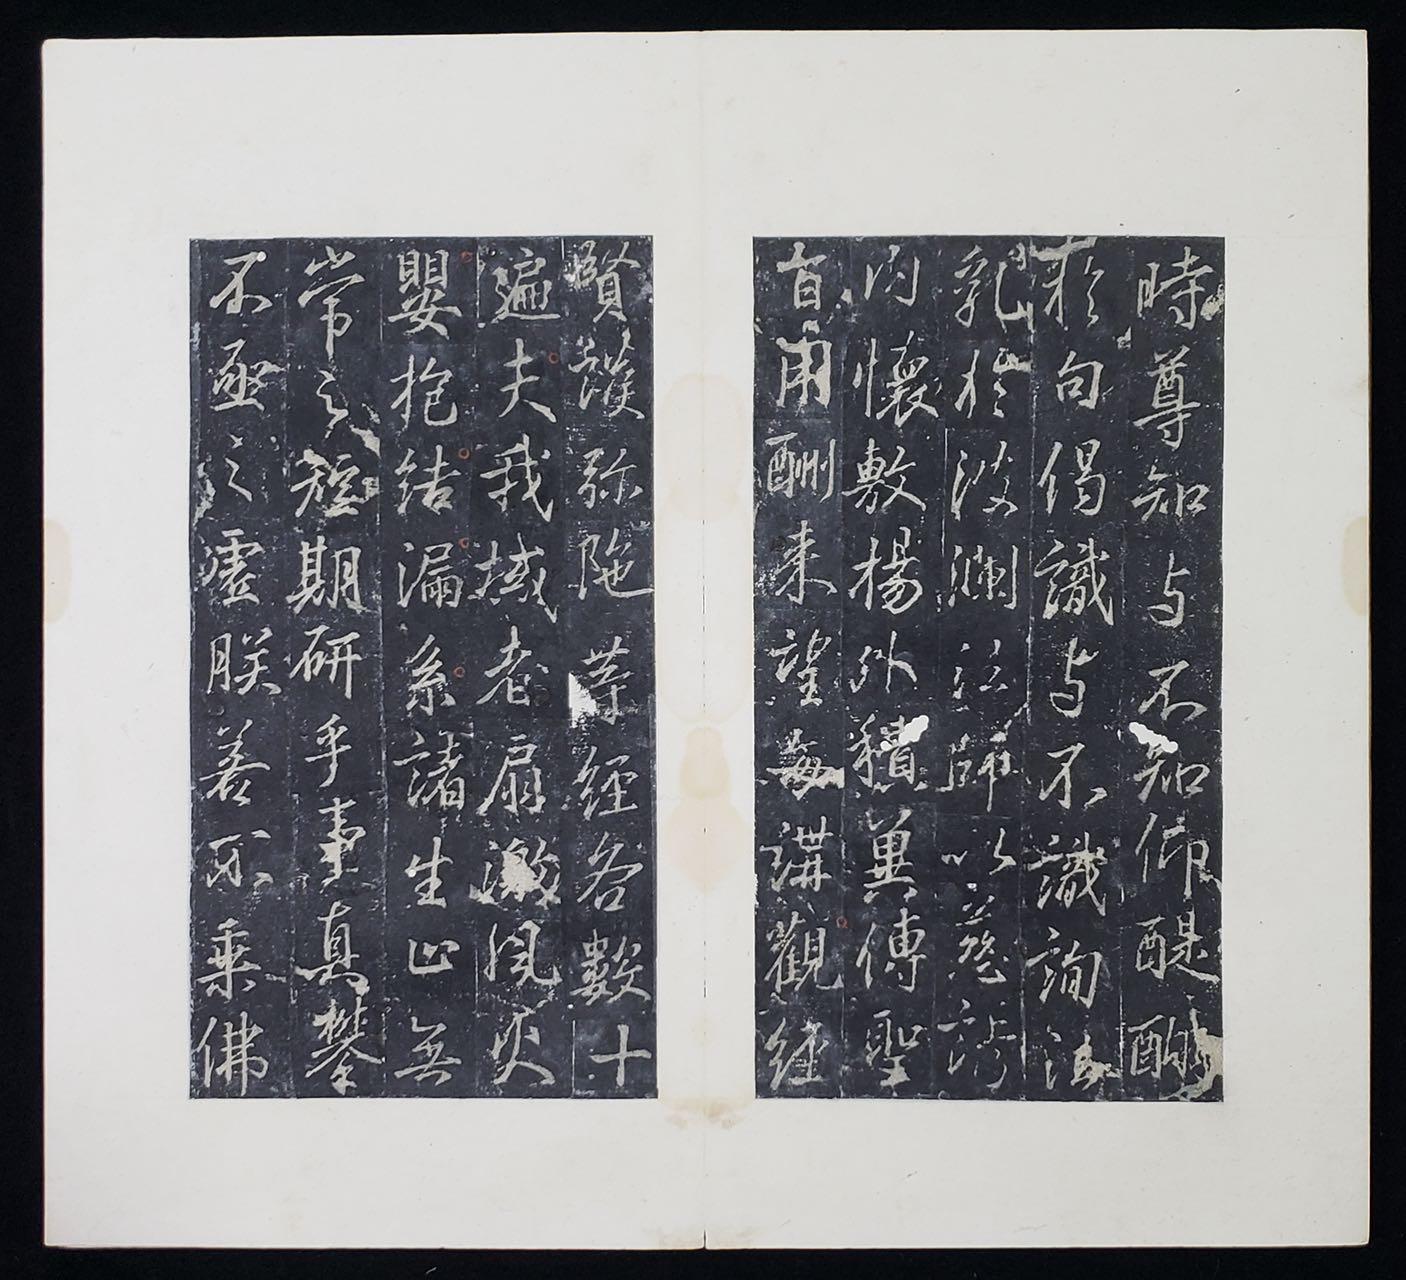 時尊知与不知仰醍醐
於句偈識与不識詢法
乳於波瀾法師以慈誘
內懷敷楊外積冀傳聖
旨用酬来望每講觀經
賢護弥陁等經各數十
遍夫我域者扇激風火
嬰抱結漏系諸生止無
常之短期研乎事真攀
不亟之虛朕若不乘佛